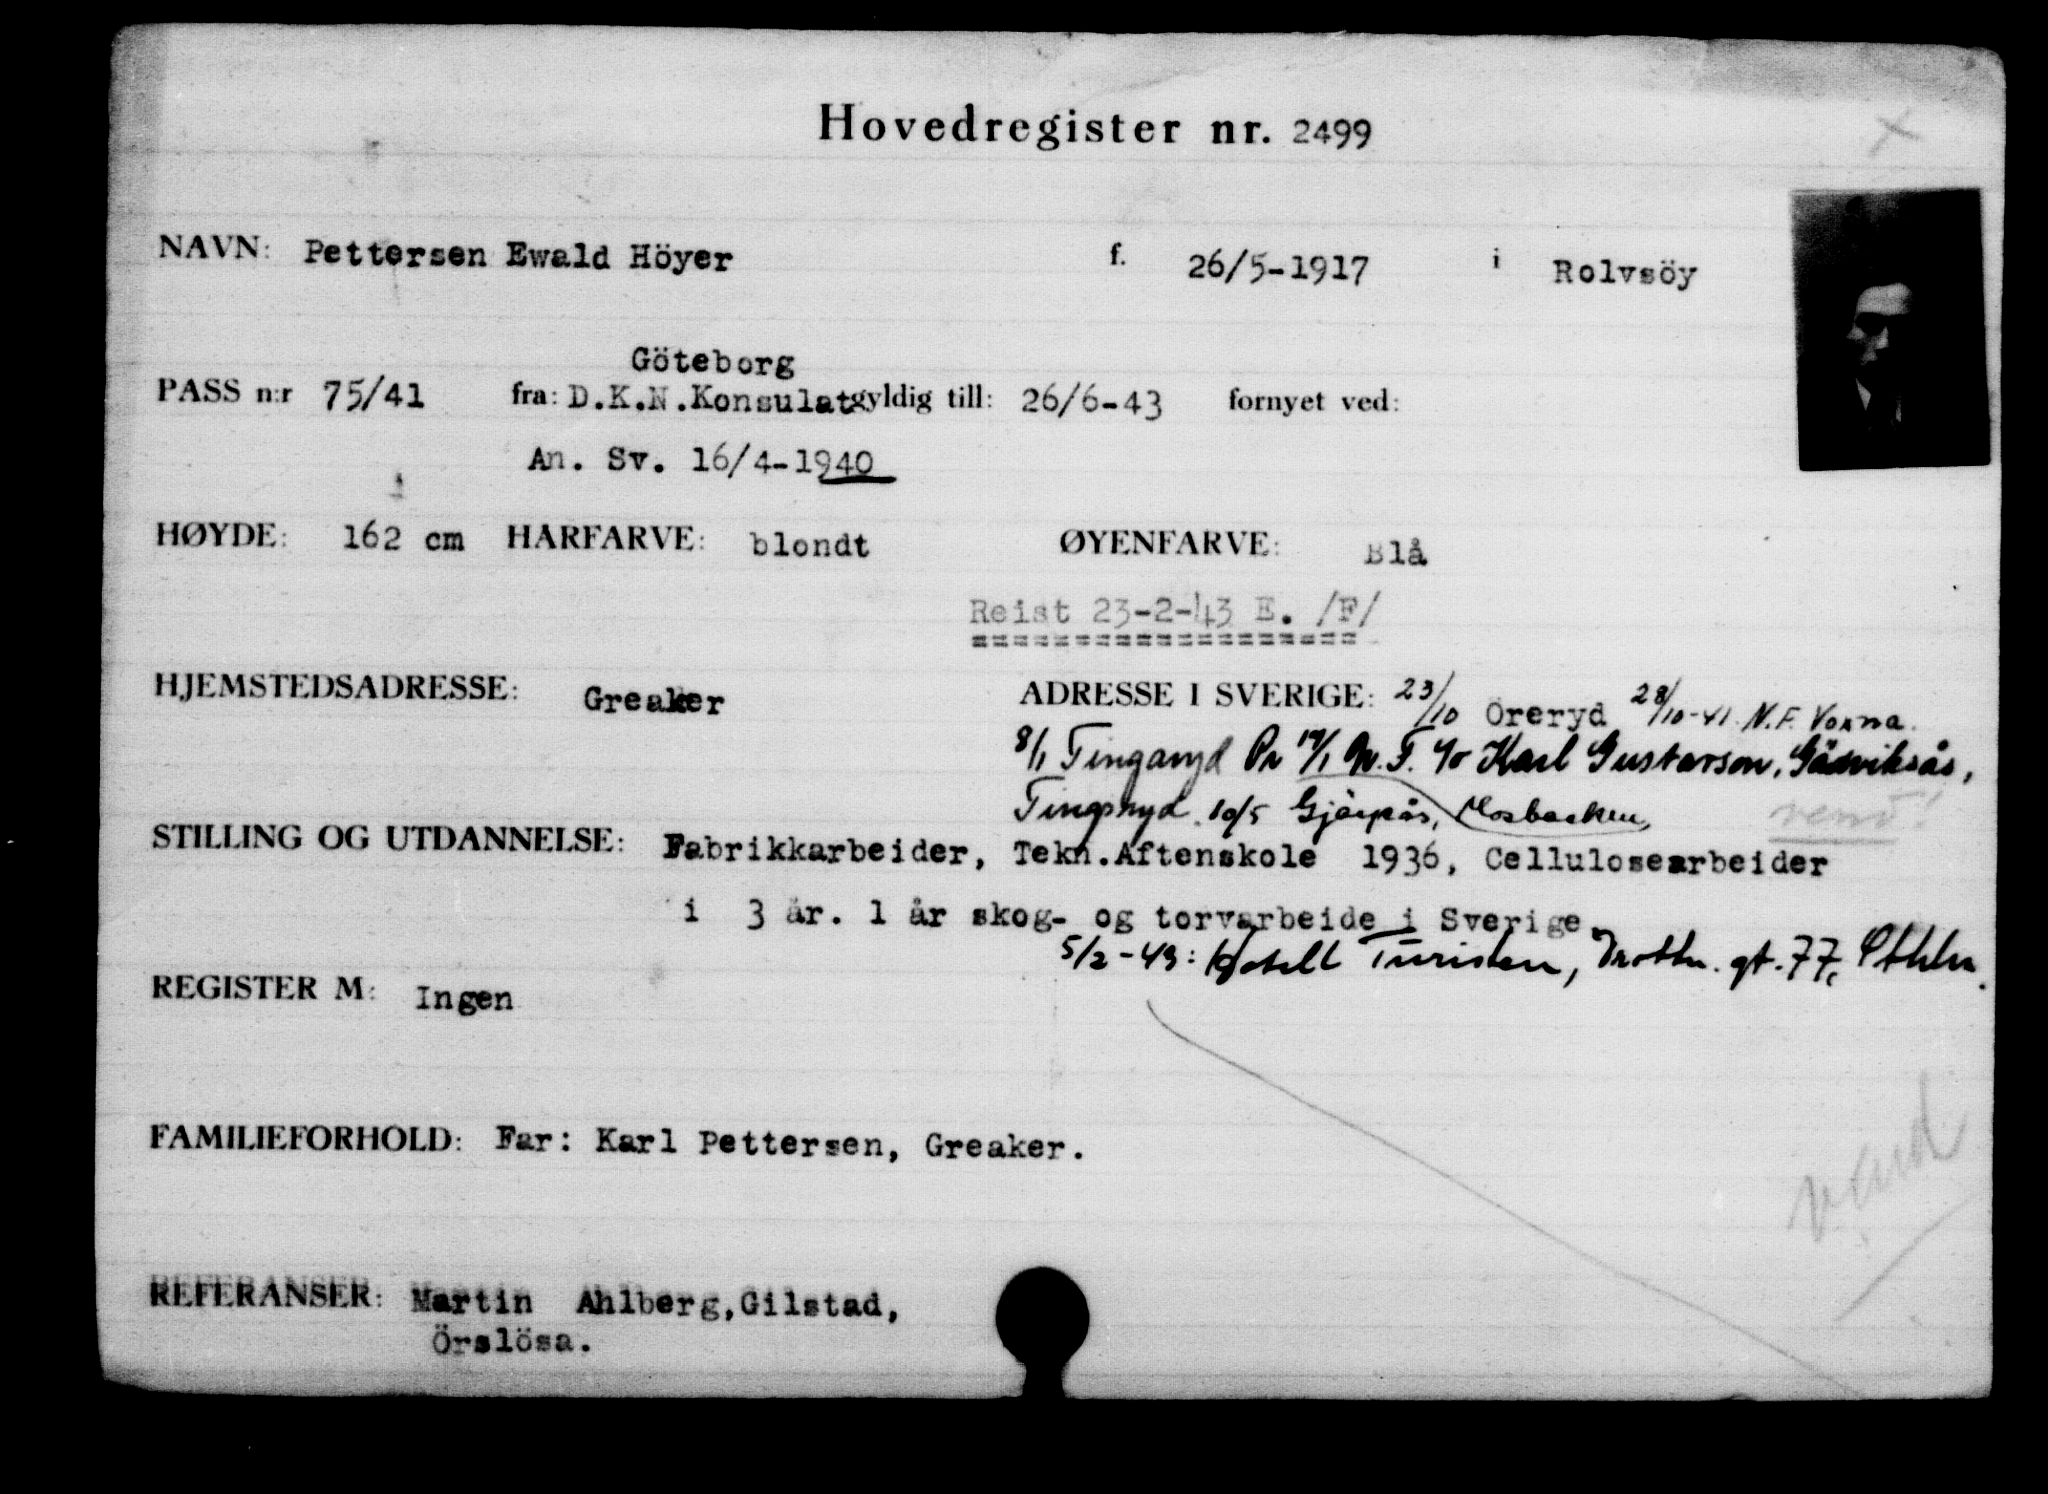 Hovedregister nr. 2499
NAVN: Pettersen Ewald Höyer f. 26/5-1917 i Rolvsöy
Göteborg
PASS n:r 75/41 fra: D.K.N.Konsulat gyldig till: 26/6-43 fornyet ved:
An. Sv. 16/4-1940
HØYDE: 162 cm HARFARVE: blondt ØYENFARVE: Blå
Reist 23-2-43 E. /F/
HJEMSTEDSADRESSE: Greaker ADRESSE I SVERIGE: 23/10 Öreryd 28/10-41 N.F. Voxna.
8/1 Tingsryd Pr N.F. c/o Karl Gustavson,
Tingsryd. 10/5 Mosbacken,
vend!
STILLING OG UTDANNELSE: Fabrikkarbeider, Tekn.Aftenskole 1936, Cellulosearbeider
i 3 år. 1 år skog- og torvarbeide i Sverige.
5/2-43: Hotell Turisten, Drottn. gt. 77, Sthlm.
REGISTER M: Ingen
FAMILIEFORHOLD: Far: Karl Pettersen, Greaker.
vend
REFERANSER: Martin Ahlberg, Gilstad,
Örslösa.